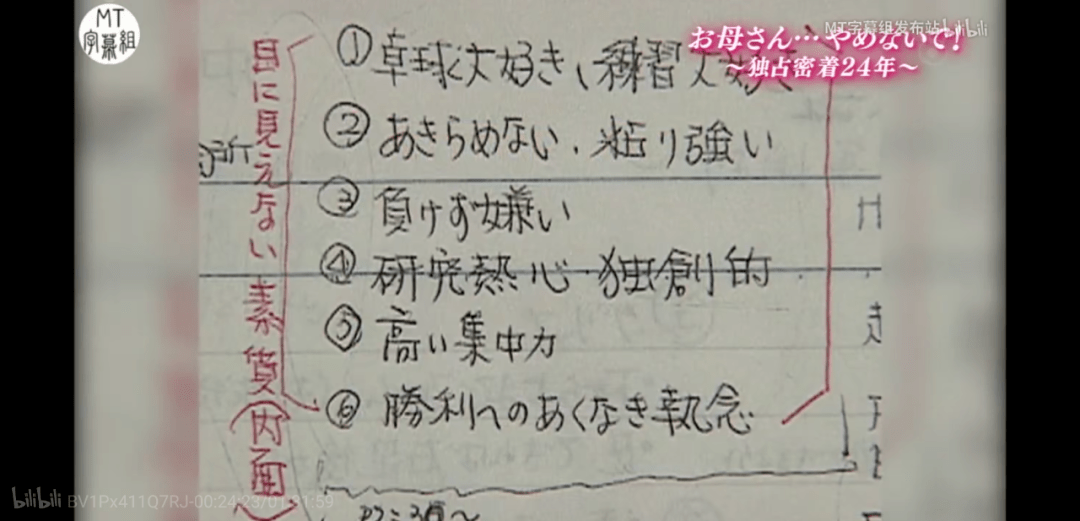 MT
字幕組
MT字幕组发布站 bilibili
お母さん…やめないで!
～独占密着24年～
目に見えない素質(内面)
①卓球大好き、練習大好き
②あきらめない・粘り強い
③負けず嫌い
④研究熱心・独創的
⑤高い集中力
⑥勝利へのあくなき執念
bilibili BV1Px411Q7RJ-00:24:23/01:31:59